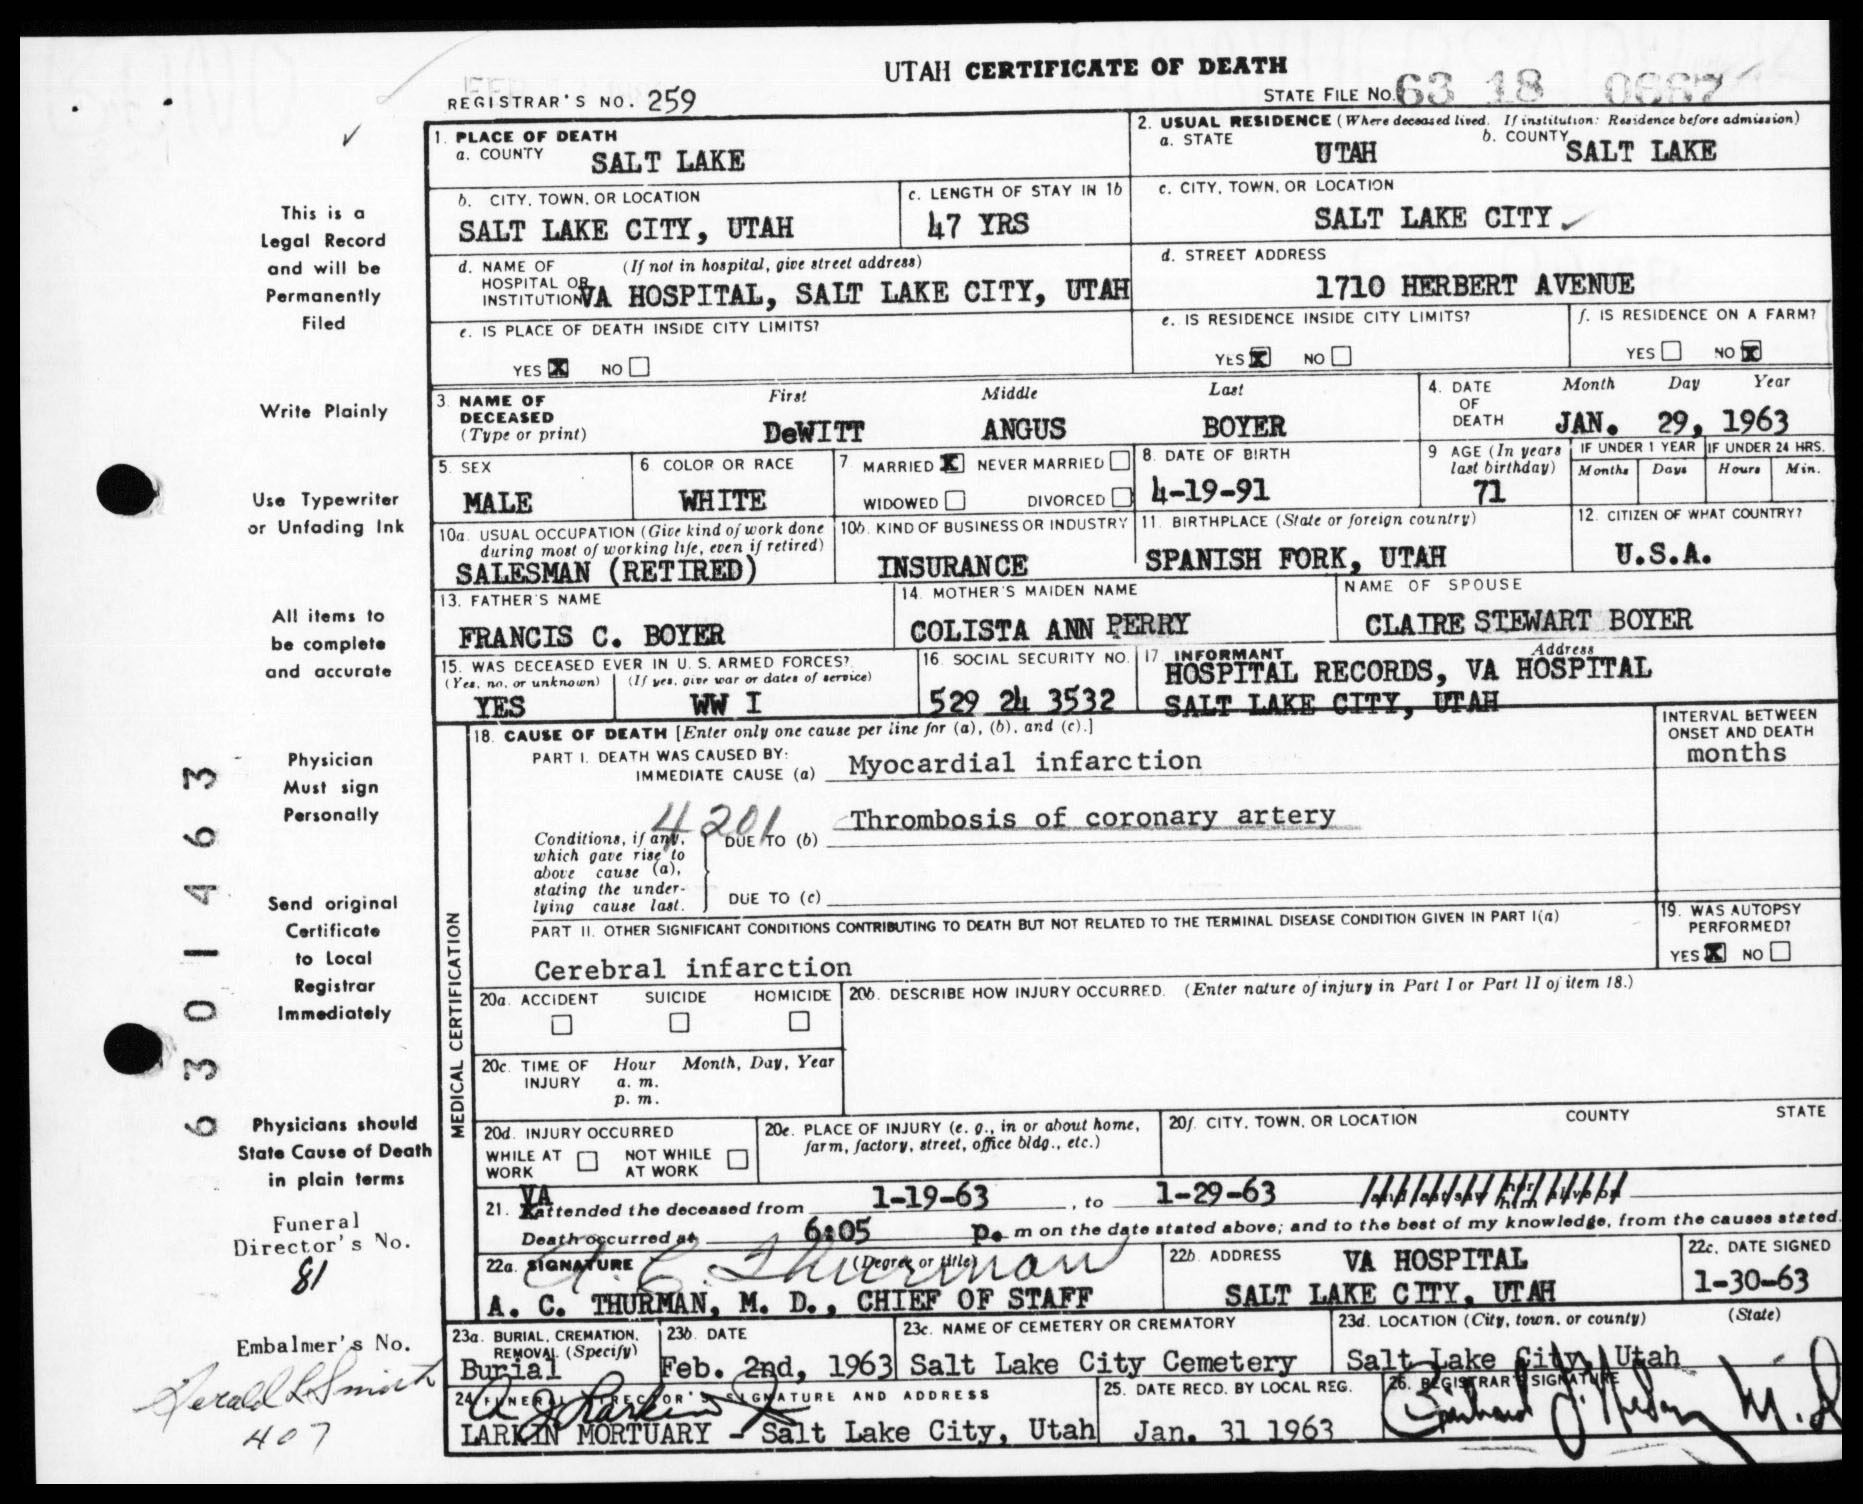 UTAH CERTIFICATE OF DEATH
REGISTRAR'S NO. 259
STATE FILE NO. 63 18 0667
1. PLACE OF DEATH
a. COUNTY SALT LAKE
2. USUAL RESIDENCE (Where deceased lived. If institution: Residence before admission)
a. STATE UTAH b. COUNTY SALT LAKE
b. CITY, TOWN, OR LOCATION
SALT LAKE CITY, UTAH
c. LENGTH OF STAY IN 1b
47 YRS
c. CITY, TOWN, OR LOCATION
SALT LAKE CITY
d. NAME OF HOSPITAL OR INSTITUTION (If not in hospital, give street address)
VA HOSPITAL, SALT LAKE CITY, UTAH
d. STREET ADDRESS
1710 HERBERT AVENUE
e. IS PLACE OF DEATH INSIDE CITY LIMITS?
YES X NO
e. IS RESIDENCE INSIDE CITY LIMITS?
YES X NO
f. IS RESIDENCE ON A FARM?
YES NO X
3. NAME OF DECEASED (Type or print)
First Middle Last
DeWITT ANGUS BOYER
4. DATE OF DEATH
Month Day Year
JAN. 29, 1963
5. SEX
MALE
6 COLOR OR RACE
WHITE
7. MARRIED X NEVER MARRIED
WIDOWED DIVORCED
8. DATE OF BIRTH
4-19-91
9 AGE (In years last birthday)
71
IF UNDER 1 YEAR
Months Days
IF UNDER 24 HRS.
Hours Min.
10a. USUAL OCCUPATION (Give kind of work done during most of working life, even if retired)
SALESMAN (RETIRED)
10b. KIND OF BUSINESS OR INDUSTRY
INSURANCE
11. BIRTHPLACE (State or foreign country)
SPANISH FORK, UTAH
12. CITIZEN OF WHAT COUNTRY?
U.S.A.
13. FATHER'S NAME
FRANCIS C. BOYER
14. MOTHER'S MAIDEN NAME
COLISTA ANN PERRY
NAME OF SPOUSE
CLAIRE STEWART BOYER
15. WAS DECEASED EVER IN U. S. ARMED FORCES?
(Yes, no, or unknown) (If yes, give war or dates of service)
YES WW I
16. SOCIAL SECURITY NO.
529 24 3532
17. INFORMANT Address
HOSPITAL RECORDS, VA HOSPITAL
SALT LAKE CITY, UTAH
MEDICAL CERTIFICATION
18. CAUSE OF DEATH [Enter only one cause per line for (a), (b), and (c).]
INTERVAL BETWEEN ONSET AND DEATH
PART I. DEATH WAS CAUSED BY:
IMMEDIATE CAUSE (a) Myocardial infarction
months
4201
Conditions, if any, which gave rise to above cause (a), stating the underlying cause last.
DUE TO (b) Thrombosis of coronary artery
DUE TO (c)
PART II. OTHER SIGNIFICANT CONDITIONS CONTRIBUTING TO DEATH BUT NOT RELATED TO THE TERMINAL DISEASE CONDITION GIVEN IN PART I(a)
Cerebral infarction
19. WAS AUTOPSY PERFORMED?
YES X NO
20a. ACCIDENT SUICIDE HOMICIDE
20b. DESCRIBE HOW INJURY OCCURRED. (Enter nature of injury in Part I or Part II of item 18.)
20c. TIME OF INJURY Hour Month, Day, Year
a. m.
p. m.
20d. INJURY OCCURRED
WHILE AT WORK NOT WHILE AT WORK
20e. PLACE OF INJURY (e. g., in or about home, farm, factory, street, office bldg., etc.)
20f. CITY, TOWN, OR LOCATION COUNTY STATE
21. VA attended the deceased from 1-19-63, to 1-29-63 and last saw her him alive on
Death occurred at 6:05 p. m on the date stated above; and to the best of my knowledge, from the causes stated.
22a. SIGNATURE (Degree or title)
A. C. Thurman
A. C. THURMAN, M. D., CHIEF OF STAFF
22b. ADDRESS VA HOSPITAL
SALT LAKE CITY, UTAH
22c. DATE SIGNED
1-30-63
23a. BURIAL, CREMATION, REMOVAL (Specify)
Burial
23b. DATE
Feb. 2nd, 1963
23c. NAME OF CEMETERY OR CREMATORY
Salt Lake City Cemetery
23d. LOCATION (City, town, or county) (State)
Salt Lake City, Utah
24. FUNERAL DIRECTOR'S SIGNATURE AND ADDRESS
LARKIN MORTUARY - Salt Lake City, Utah
25. DATE RECD. BY LOCAL REG.
Jan. 31 1963
26. REGISTRAR'S SIGNATURE
This is a
Legal Record
and will be
Permanently
Filed
Write Plainly
Use Typewriter
or Unfading Ink
All items to
be complete
and accurate
Physician
Must sign
Personally
Send original
Certificate
to Local
Registrar
Immediately
Physicians should
State Cause of Death
in plain terms
Funeral
Director's No.
81
Embalmer's No.
Gerald L Smith
407
6301463